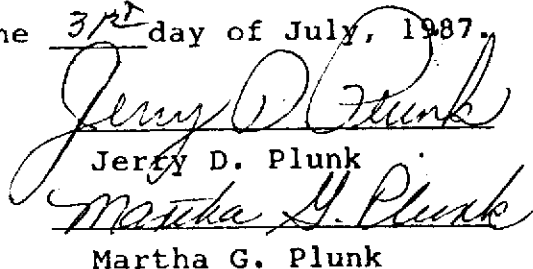 he 31st day of July, 1987.
Jerry D. Plunk
Jerry D. Plunk
Martha G. Plunk
Martha G. Plunk